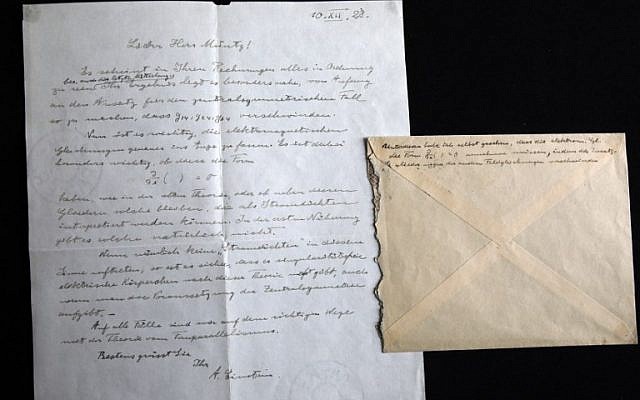 10. XII. 28.
Lieber Herr Müntz!
Es scheint in Ihren Rechnungen alles in Ordnung
zu sein. Ihr Ergebnis legt es besonders nahe, von Anfang
an den Ansatz für den zentralsymmetrischen Fall
so zu machen, dass verschwinden.
Nun ist es wichtig, die elektromagnetischen
Gleichungen genauer ins Auge zu fassen. Es ist dabei
besonders wichtig, ob diese die Form
( ) = 0
haben, wie in der alten Theorie, oder ob neben diesen
Gliedern solche bleiben, die als Stromdichten
interpretiert werden können. In der ersten Näherung
gibt es solche natürlich nicht.
Wenn nämlich keine „Stromdichten" in diesem
Sinne auftreten, so ist es sicher, dass es singularitätsfreie
elektrische Körperchen nach dieser Theorie nicht gibt, auch
wenn man die Voraussetzung der Zentralsymmetrie
aufgibt. —
Auf alle Fälle sind wir auf dem richtigen Wege
mit der Theorie vom Fernparallelismus.
Bestens grüsst Sie
Ihr
A. Einstein.
habe ich selbst gesehen, dass die elektrom. Gl.
die Form = 0 annehmen müssen,